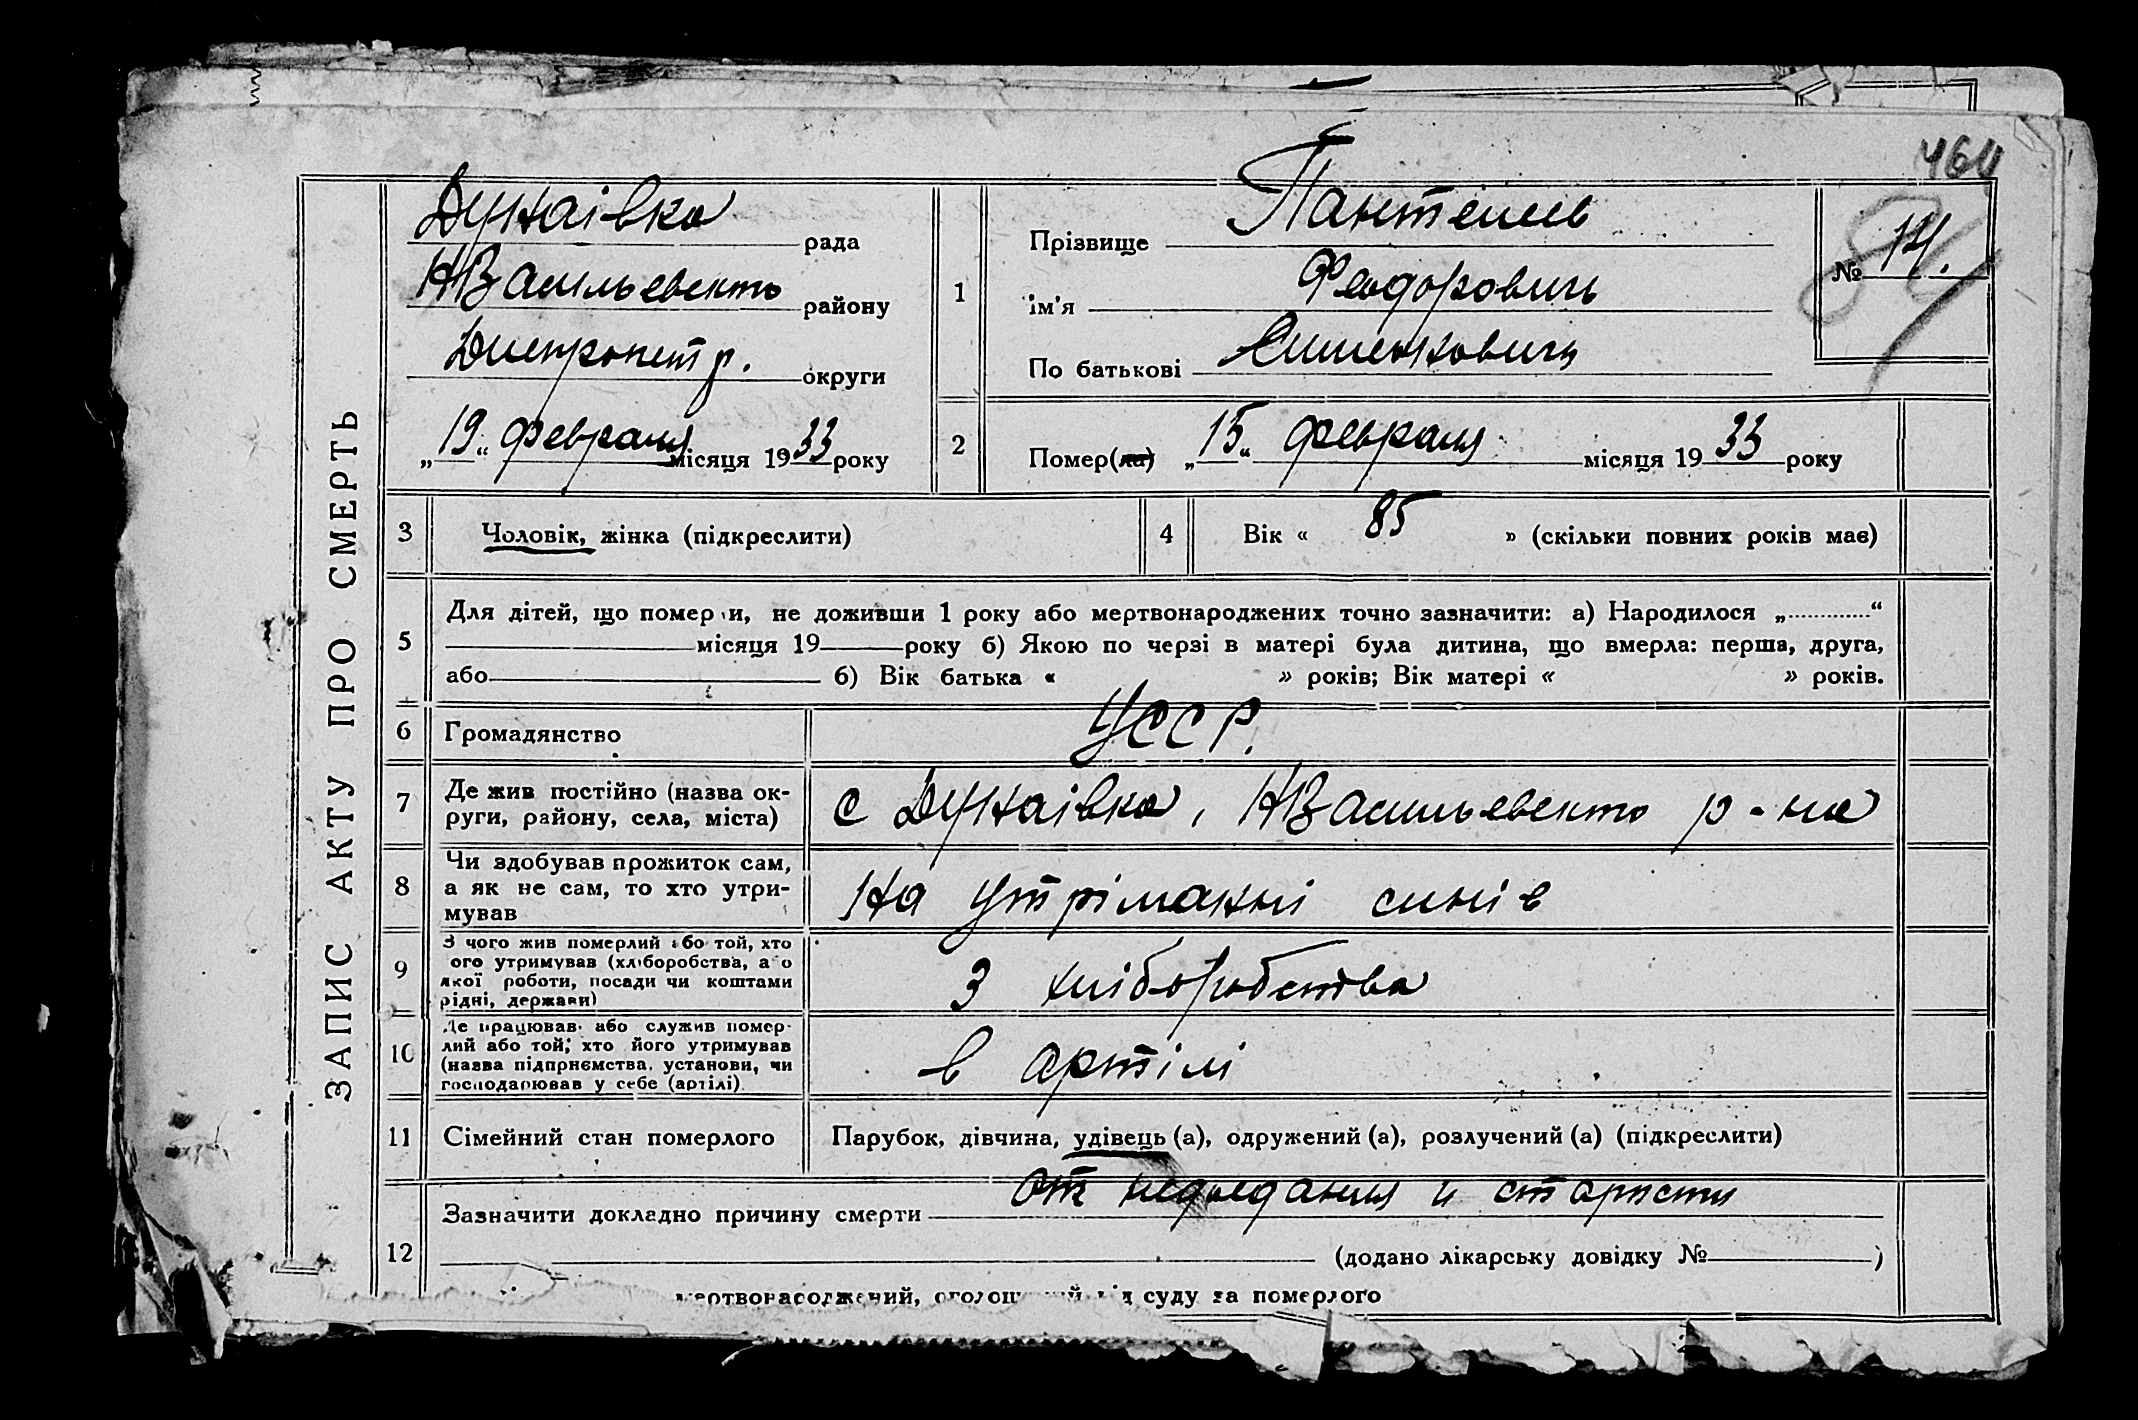 464
ЗАПИС АКТУ ПРО СМЕРТЬ
Дунаівка рада
НВасильевскто району
Днепропетр. округи
„19“ февраля місяця 1933 року
1
Прізвище Пантелей
ім'я Феодорович
По батькові
№ 14.
2
Помер(ла) „15“ февраля місяця 1933 року
3 Чоловік, жінка (підкреслити)
4 Вік « 85 » (скільки повних років має)
5 Для дітей, що померли, не доживши 1 року або мертвонароджених точно зазначити: а) Народилося „ “
місяця 19 року б) Якою по черзі в матері була дитина, що вмерла: перша, друга,
або б) Вік батька « » років; Вік матері « » років.
6 Громадянство УССР.
7 Де жив постійно (назва ок-
руги, району, села, міста)
с Дунаівка, НВасильевскто р-на
8 Чи здобував прожиток сам,
а як не сам, то хто утри-
мував
На утріманні синів
9 З чого жив померлий або той, хто
ого утримував (хліборобства, або
якої роботи, посади чи коштами
рідні, держави)
З хліборобства
10 Де працював або служив помер-
лий або той, хто його утримував
(назва підприємства, установи, чи
господарював у себе (артілі).
в артілі
11 Сімейний стан померлого Парубок, дівчина, удівець (а), одружений (а), розлучений (а) (підкреслити)
12 Зазначити докладно причину смерти от недоедания и старости
(додано лікарську довідку № )
мертвонароджений, суду за померлого